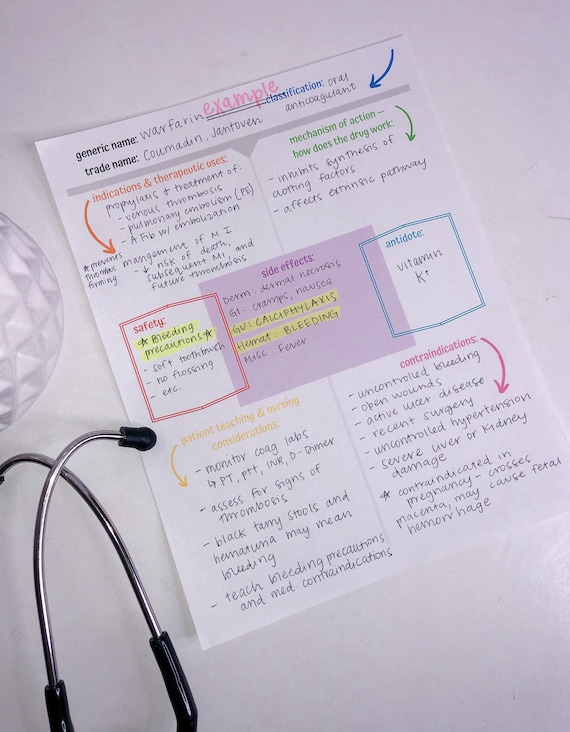 example
generic name: warfarin
classification: oral
anticoagulant
trade name: Coumadin, Jantoven
indications & therapeutic uses:
propylaxis & treatment of:
- venous thrombosis
- pulmonary embolism (PE)
- A Fib w/ embolization
mangement of M.I.
- ↓ risk of death,
subsequent MI, and
future thrombosis
* prevents
thrombus
forming
mechanism of action –
how does the drug work:
- inhibits synthesis of
clotting factors
- affects extrinsic pathway
side effects:
Derm: dermal necrosis
GI: cramps, nausea
GU: CALCIPHYLAXIS
Hemat: BLEEDING
Misc: Fever
antidote:
vitamin
K+
safety:
* Bleeding
precautions *
- soft toothbrush
- no flossing
- etc.
patient teaching & nursing
considerations:
- monitor coag labs
↳ PT, ptt, INR, D-Dimer
- assess for signs of
thrombosis
- black tarry stools and
hematuria may mean
bleeding
- teach bleeding precautions
and med. contraindications
contraindications:
- uncontrolled bleeding
- open wounds
- active ulcer disease
- recent surgery
- uncontrolled hypertension
- severe liver or kidney
damage
* contraindicated in
pregnancy - crosses
placenta, may cause fetal
hemorrhage